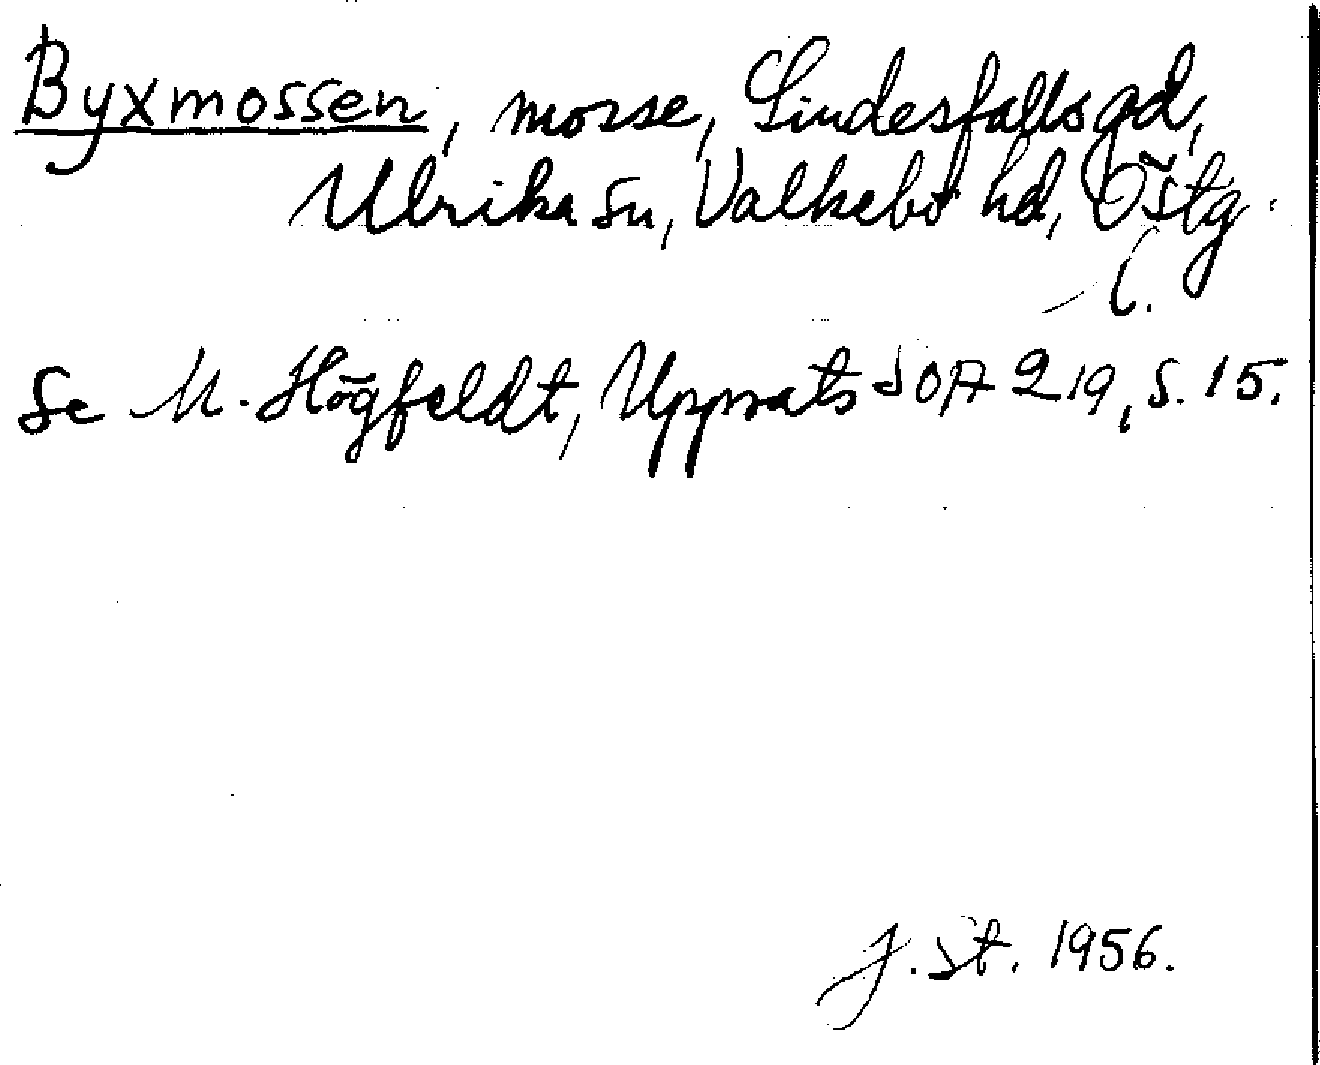 Byxmossen, mosse, Lindesfalls gd,
Ulrika sn, Valkebo hd, Östg.
l.
Se M. Högfeldt, Uppsats SOA 219, s. 15.
J. St. 1956.